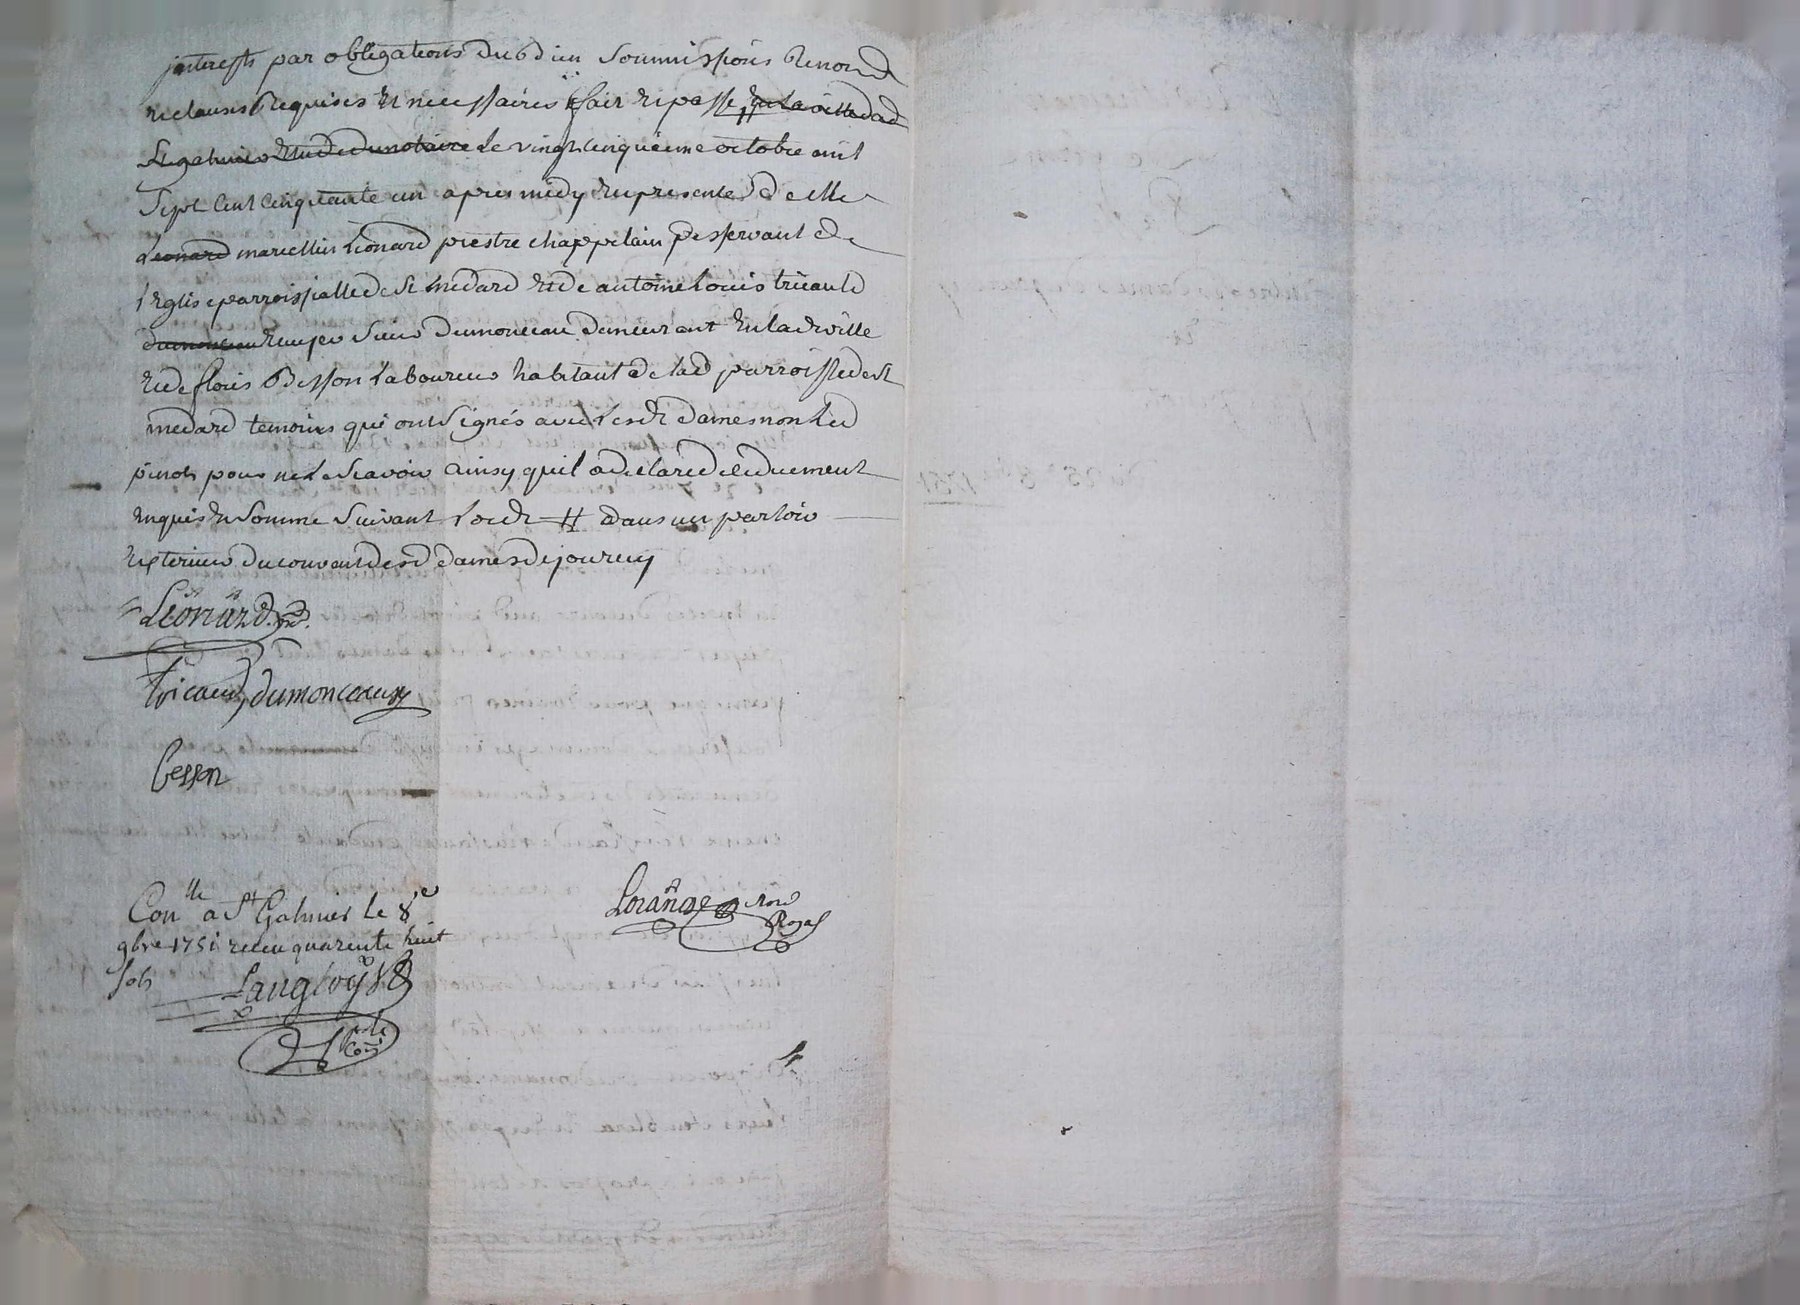 interests par obligations du d un soumissions Renond
et clauses Requises et necessaires fait et passé en la ville dud
St galmier etude du notaire Le vingt cinquieme octobre mil
Sept cent cinquante un apres midy en presence de
Leonard marcellin Léonard prestre chappelain desservant de
l'Eglise parroissialle de St medard et de antoine Louis tricaud
dumonceau Sieur dumonceau demeurant en lad ville
et de flouris Besson laboureur habitant de lad parroisse de St
medard temoins qui ont signés avec lesd dames non led
pour ne le scavoir ainsy quil a declaré de ce duement
enquis en somme suivant lord # dans un parloir
exterieur du couvant desd dames de jourcey
Léonard
Tricaud dumonceau
Besson
Lorange Roial
Conlle a St Galmier le 8e
9bre 1751 receu quarente huit
sols
Langloys